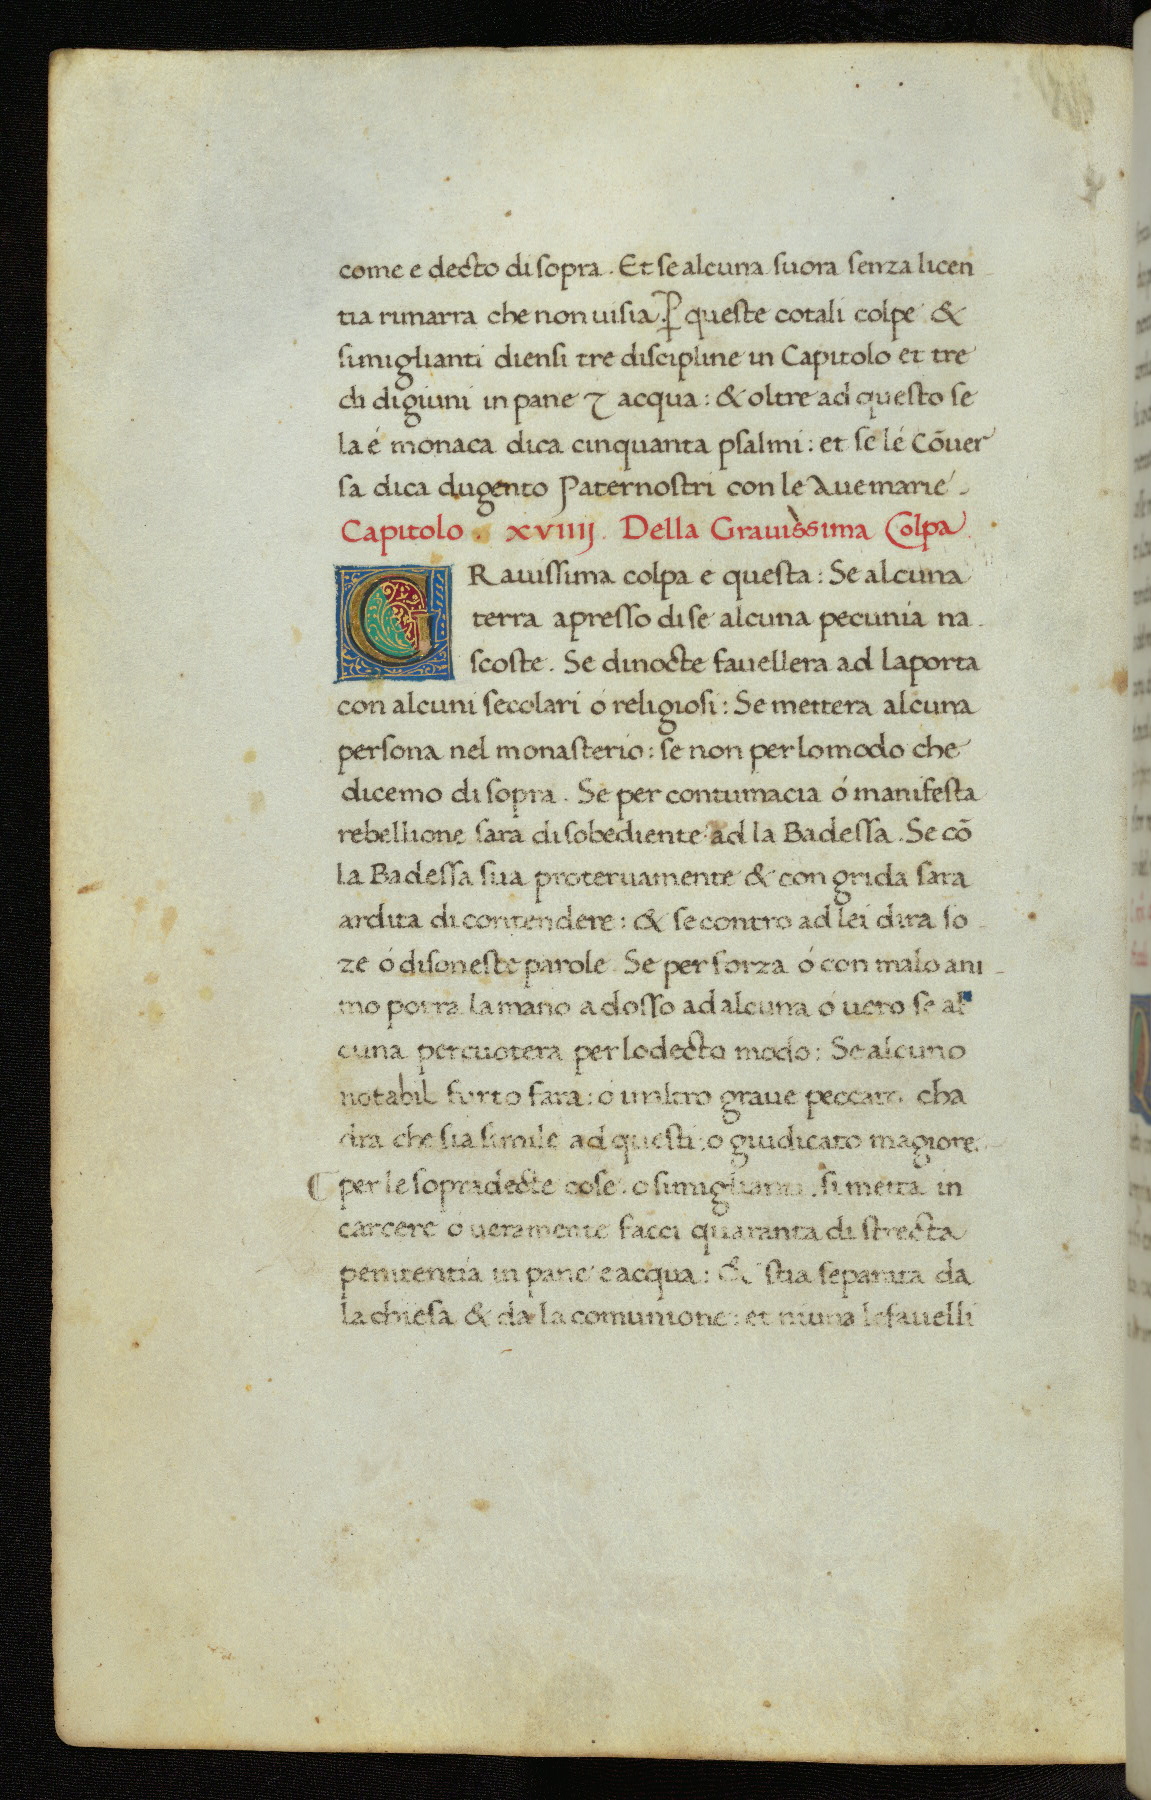 come e decto di sopra. Et se alcuna suora senza licen
tia rimarra che non ui sia. ꝑ queste cotali colpe &
simiglianti diensi tre discipline in Capitolo et tre
di digiuni in pane ⁊ acqua: & oltre ad questo se
la é monaca dica cinquanta psalmi: et se lé Cōuer
sa dica dugento Paternostri con le Aue marie.
Capitolo. xviiij. Della Grauissima Colpa.
GRauissima colpa e questa: Se alcuna
terra apresso di se alcuna pecunia na
scoste. Se di nocte fauellera ad la porta
con alcuni secolari ó religiosi: Se mettera alcuna
persona nel monasterio: se non per lo modo che
dicemo di sopra. Se per contumacia ó manifesta
rebellione sara disobediente ad la Badessa. Se cō
la Badessa sua proteruamente & con grida sara
ardita di contendere: & se contro ad lei dira so
ze ó disoneste parole. Se per forza ó con malo ani
mo porra la mano adosso ad alcuna ó uero se al
cuna percuotera per lo decto modo: Se alcuno
notabil furto fara: o in altro graue peccato cha
dra che sia simile ad questi, o giudicato magiore.
per le sopradecte cose. o simiglianti. si metta in
carcere o ueramente facci quaranta di strecta
penitentia in pane e acqua: & stia separata da
la chiesa & da la comunione: et niuna le fauelli